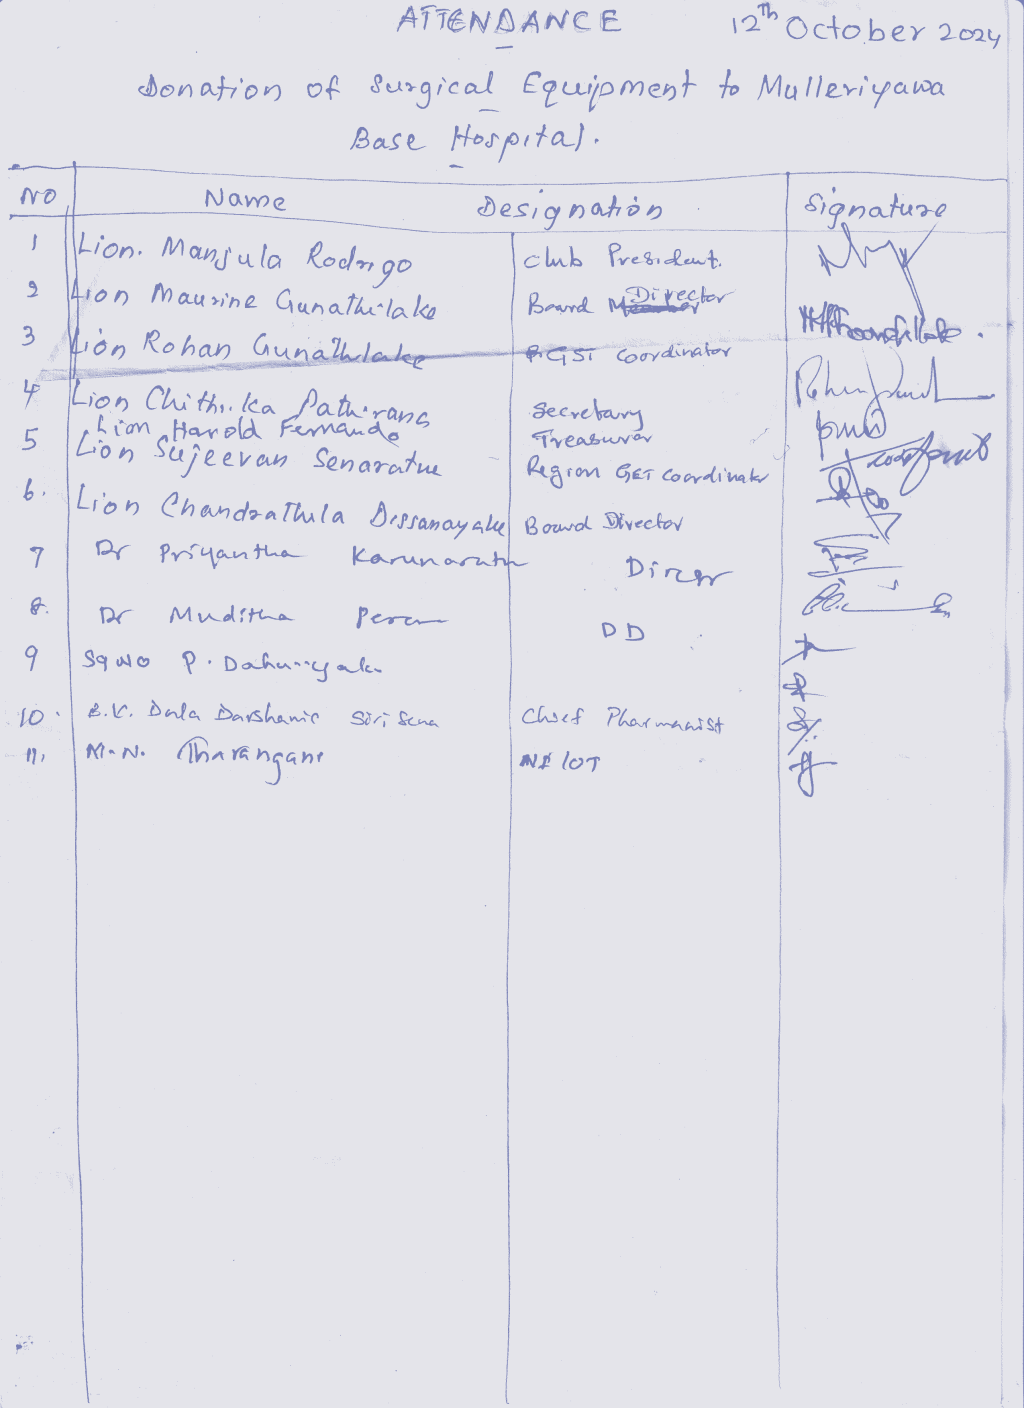 ATTENDANCE 12th October 2024
Donation of Surgical Equipment to Mulleriyawa
Base Hospital.
NO Name Designation Signature
1 Lion. Manjula Rodrigo Club President.
2 Lion Maurine Gunathilake Board Director
3 Lion Rohan Gunathilake GST Coordinator
4 Lion Chithrika Pathirana Secretary
Lion Harold Fernando Treasurer
5 Lion Sujeevan Senaratne Region GET Coordinator
6. Lion Chandrathila Dissanayake Board Director
7 Dr Priyantha Karunarathn
8. Dr Muditha DD
9 P.
10. Darshanie Sirisena Chief Pharmacist
11. M.N. Tharangani